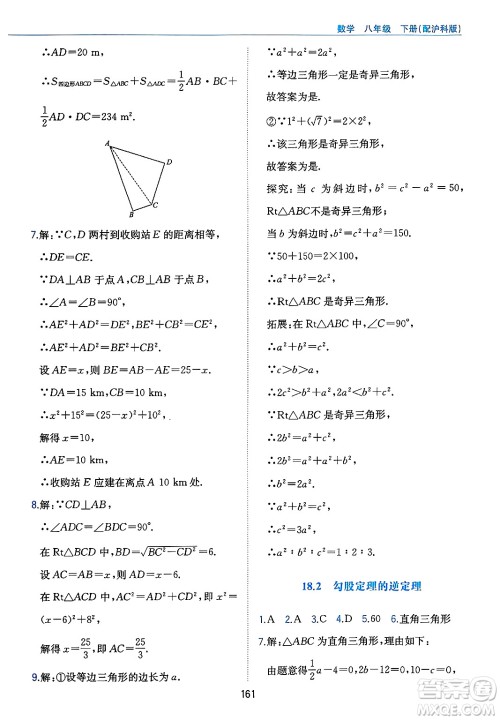 数学 八年级 下册(配沪科版)
∴AD=20 m,
∴S四边形ABCD=S△ABC+S△ADC=1/2AB·BC+
1/2AD·DC=234 m².
A
D
B
C
7.解:∵C,D两村到收购站E的距离相等,
∴DE=CE.
∵DA⊥AB于点A,CB⊥AB于点B,
∴∠A=∠B=90°,
∴AE²+AD²=DE²,BE²+BC²=EC²,
∴AE²+AD²=BE²+BC².
设AE=x,则BE=AB-AE=25-x.
∵DA=15 km,CB=10 km,
∴x²+15²=(25-x)²+10²,
解得x=10,
∴AE=10 km,
∴收购站E应建在离点A 10 km处.
8.解:∵CD⊥AB,
∴∠BDC=∠ADC=90°.
在Rt△BCD中,BD=√(BC²-CD²)=6.
设AB=AC=x,则AD=x-6.
在Rt△ACD中,AC²=AD²+CD²,
∴x²=(x-6)²+8²,
解得x=25/3,即AB=25/3.
9.解:①设等边三角形的边长为a.
∵a²+a²=2a²,
∴等边三角形一定是奇异三角形,
故答案为是.
②∵1²+(√7)²=2×2²,
∴该三角形是奇异三角形,
故答案为是.
探究:当c为斜边时,b²=c²-a²=50,
Rt△ABC不是奇异三角形;
当b为斜边时,b²=c²+a²=150.
∵50+150=2×100,
∴a²+b²=2c²,
∴Rt△ABC是奇异三角形.
拓展:∵Rt△ABC中,∠C=90°,
∴a²+b²=c².
∵c>b>a,
∴2c²>b²+a²,2a²<b²+c².
∵Rt△ABC是奇异三角形,
∴2b²=a²+c²,
∴2b²=a²+a²+b²,
∴b²=2a²,
∴c²=3a²,
∴a²∶b²∶c²=1∶2∶3.
18.2 勾股定理的逆定理
1.A 2.A 3.C 4.D 5.60 6.直角三角形
7.解:△ABC为直角三角形,理由如下:
由题意得1/2a-4=0,2b-12=0,10-c=0,
161